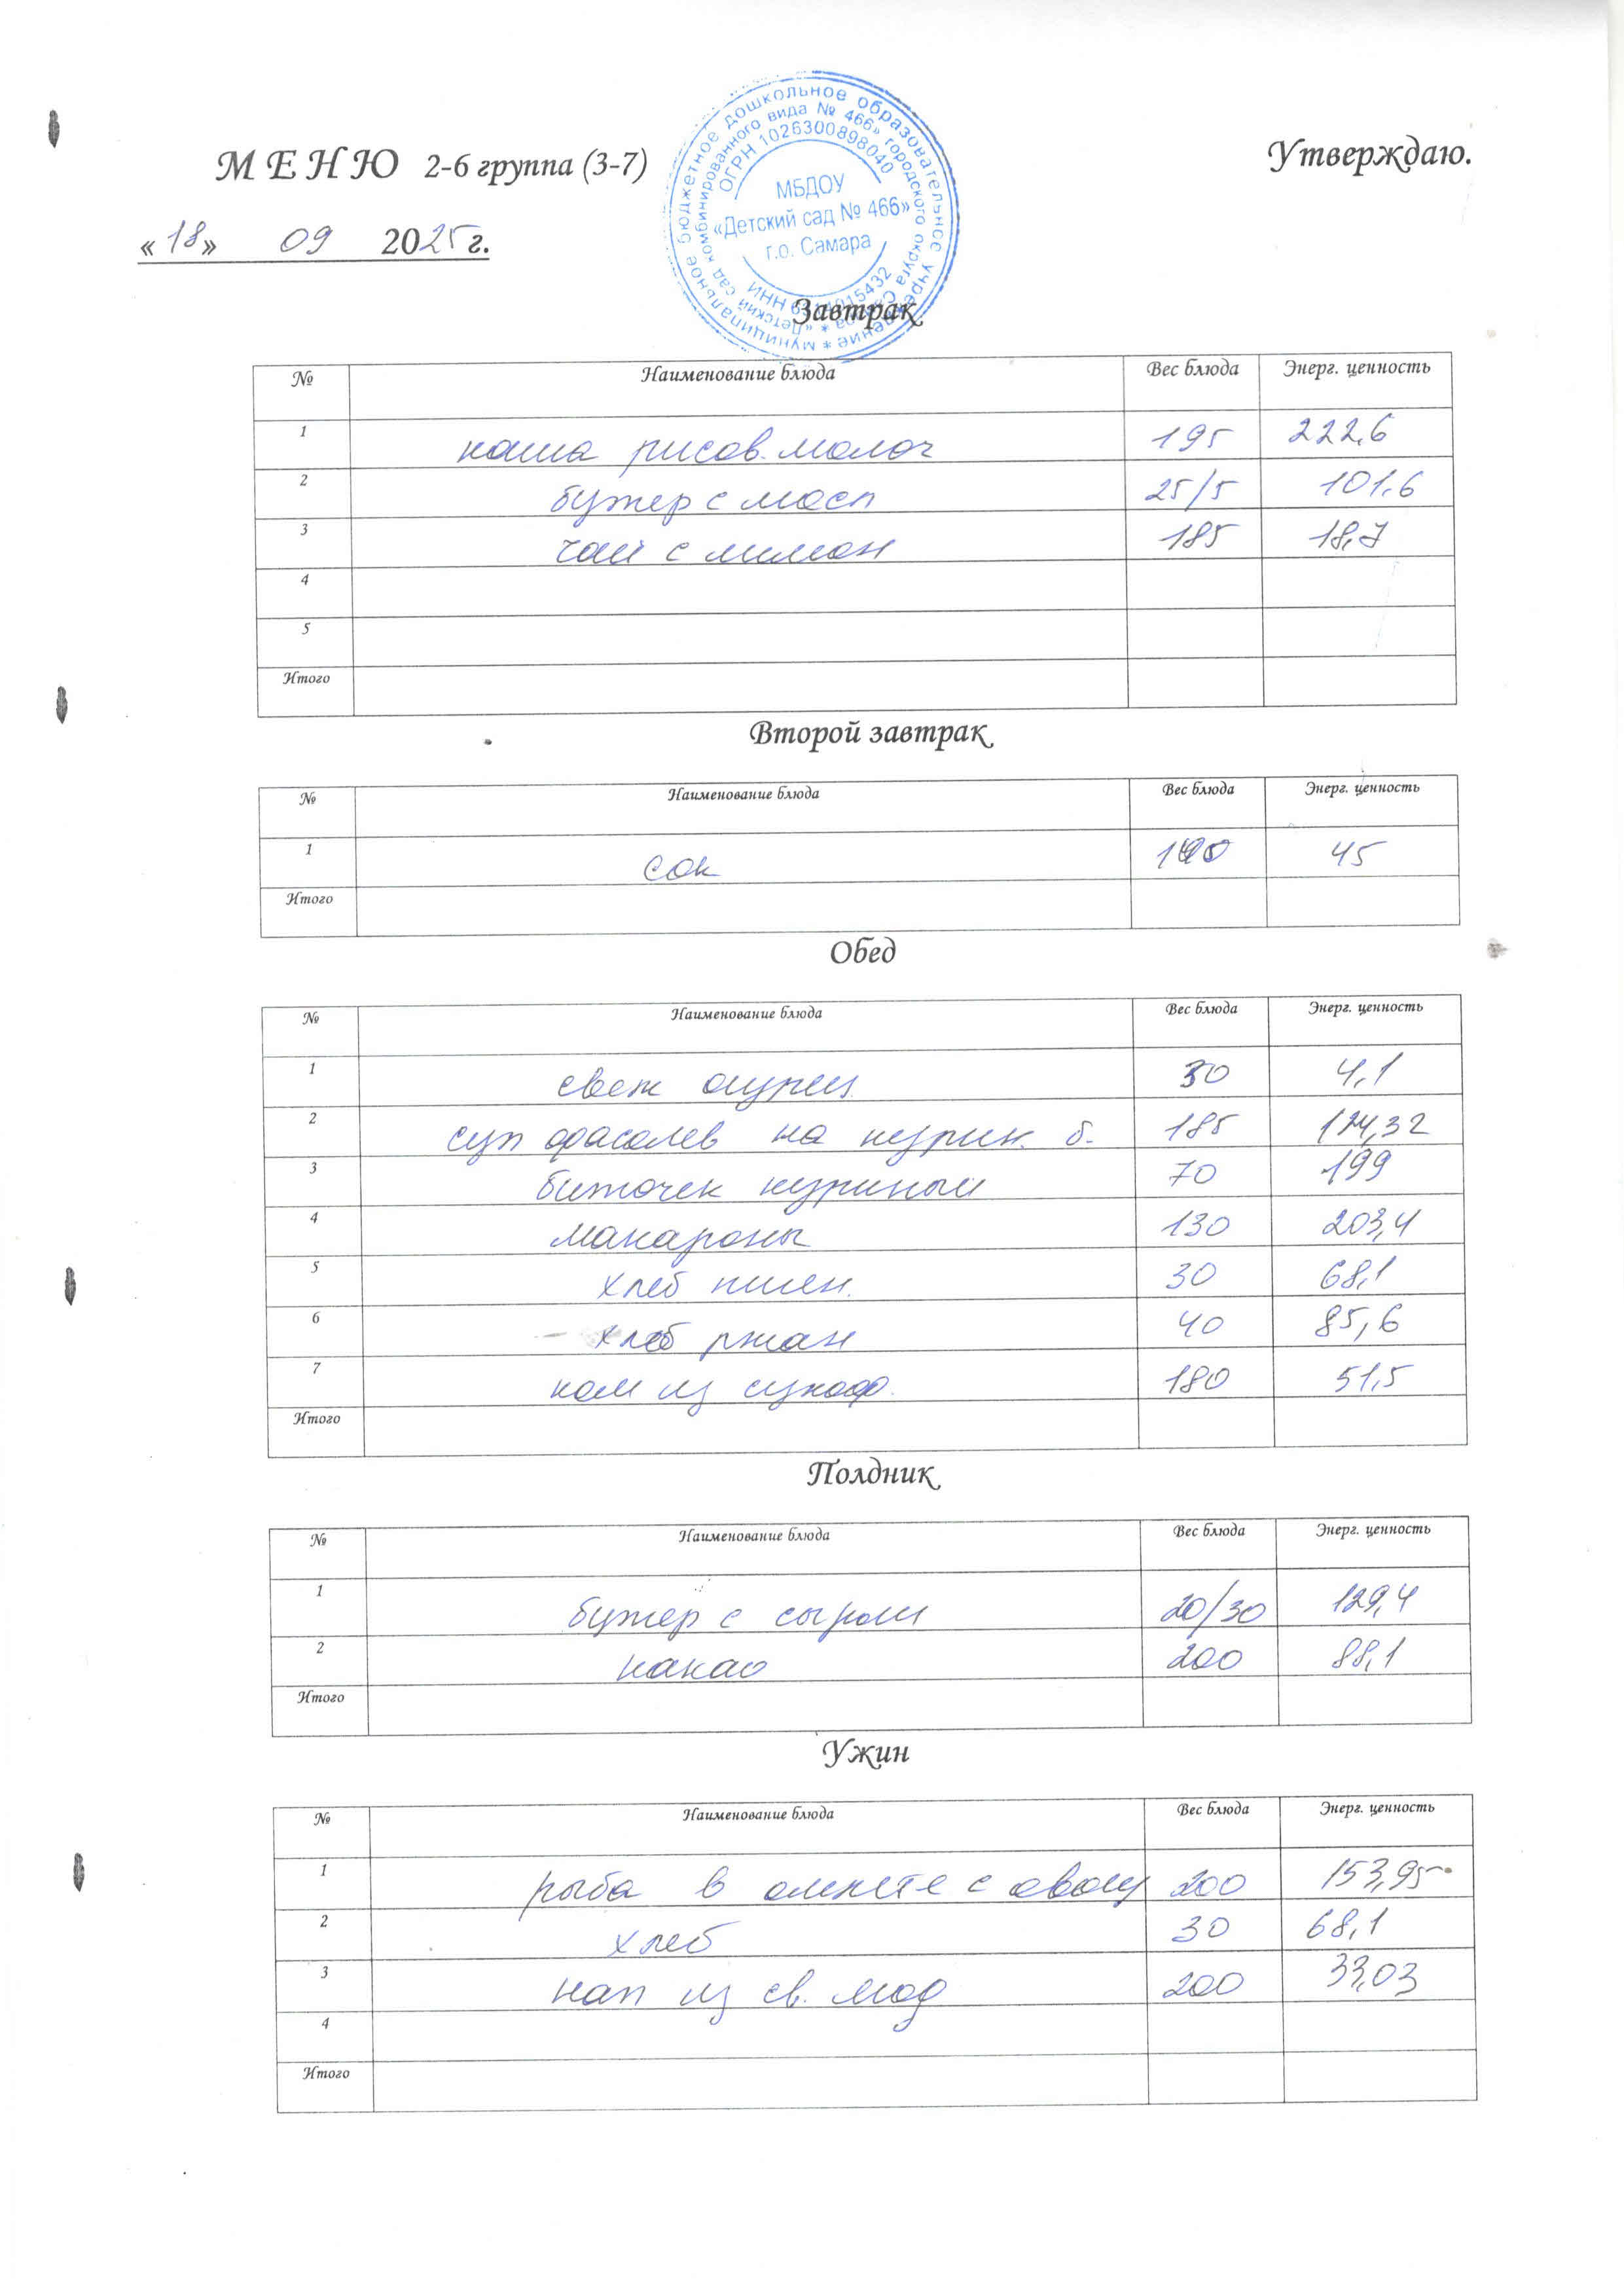 М Е Н Ю 2-6 группа (3-7)
Утверждаю.
«18» 09 2025 г.
муниципальное бюджетное дошкольное образовательное учреждение *
«Детский сад комбинированного вида № 466» городского округа Самара *
ОГРН 1026300898040
МБДОУ
«Детский сад № 466»
г.о. Самара
ИНН
Завтрак
№ Наименование блюда Вес блюда Энерг. ценность
1 каша рисов. молоч 195 222,6
2 бутер с масл 25/5 101,6
3 чай с лимон 185 18,7
4
5
Итого
Второй завтрак
№ Наименование блюда Вес блюда Энерг. ценность
1 сок 45
Итого
Обед
№ Наименование блюда Вес блюда Энерг. ценность
1 свеж огурец 30 4,1
2 суп фасолев на курин. б. 185 124,32
3 биточек куриный 70 199
4 макароны 130 203,4
5 хлеб пшен. 30 68,1
6 хлеб ржан 40 85,6
7 ком из сухоф. 180 51,5
Итого
Полдник
№ Наименование блюда Вес блюда Энерг. ценность
1 бутер с сыром 20/30 129,4
2 какао 200 88,1
Итого
Ужин
№ Наименование блюда Вес блюда Энерг. ценность
1 рыба в омлете с овощ 200 153,95
2 хлеб 30 68,1
3 нап из св. 200 33,03
4
Итого